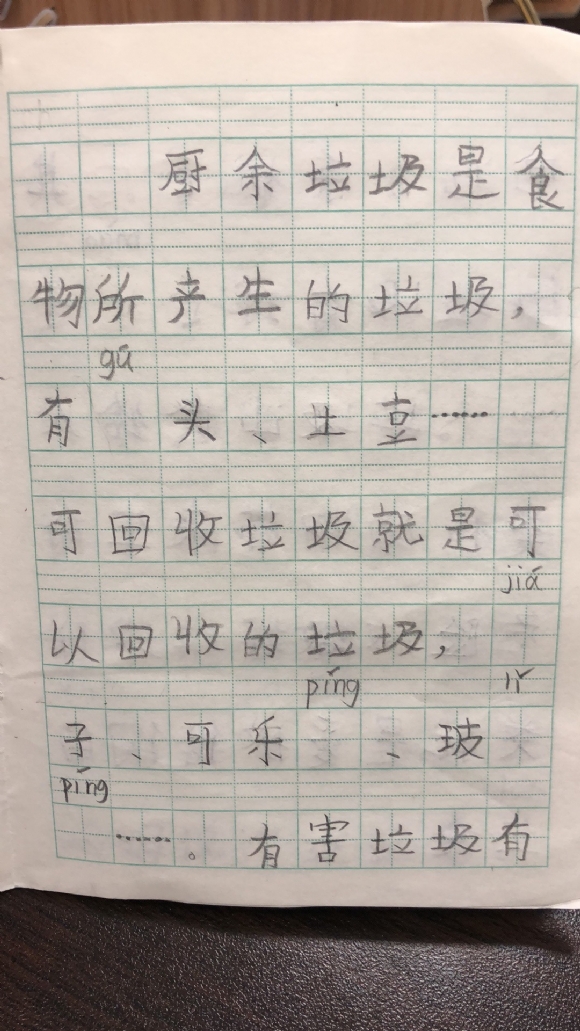 厨余垃圾是食
物所产生的垃圾，
gǔ
有 头、土豆……
可回收垃圾就是可
jiá
以回收的垃圾，
píng lí
子、可乐 、玻
píng
……。有害垃圾有